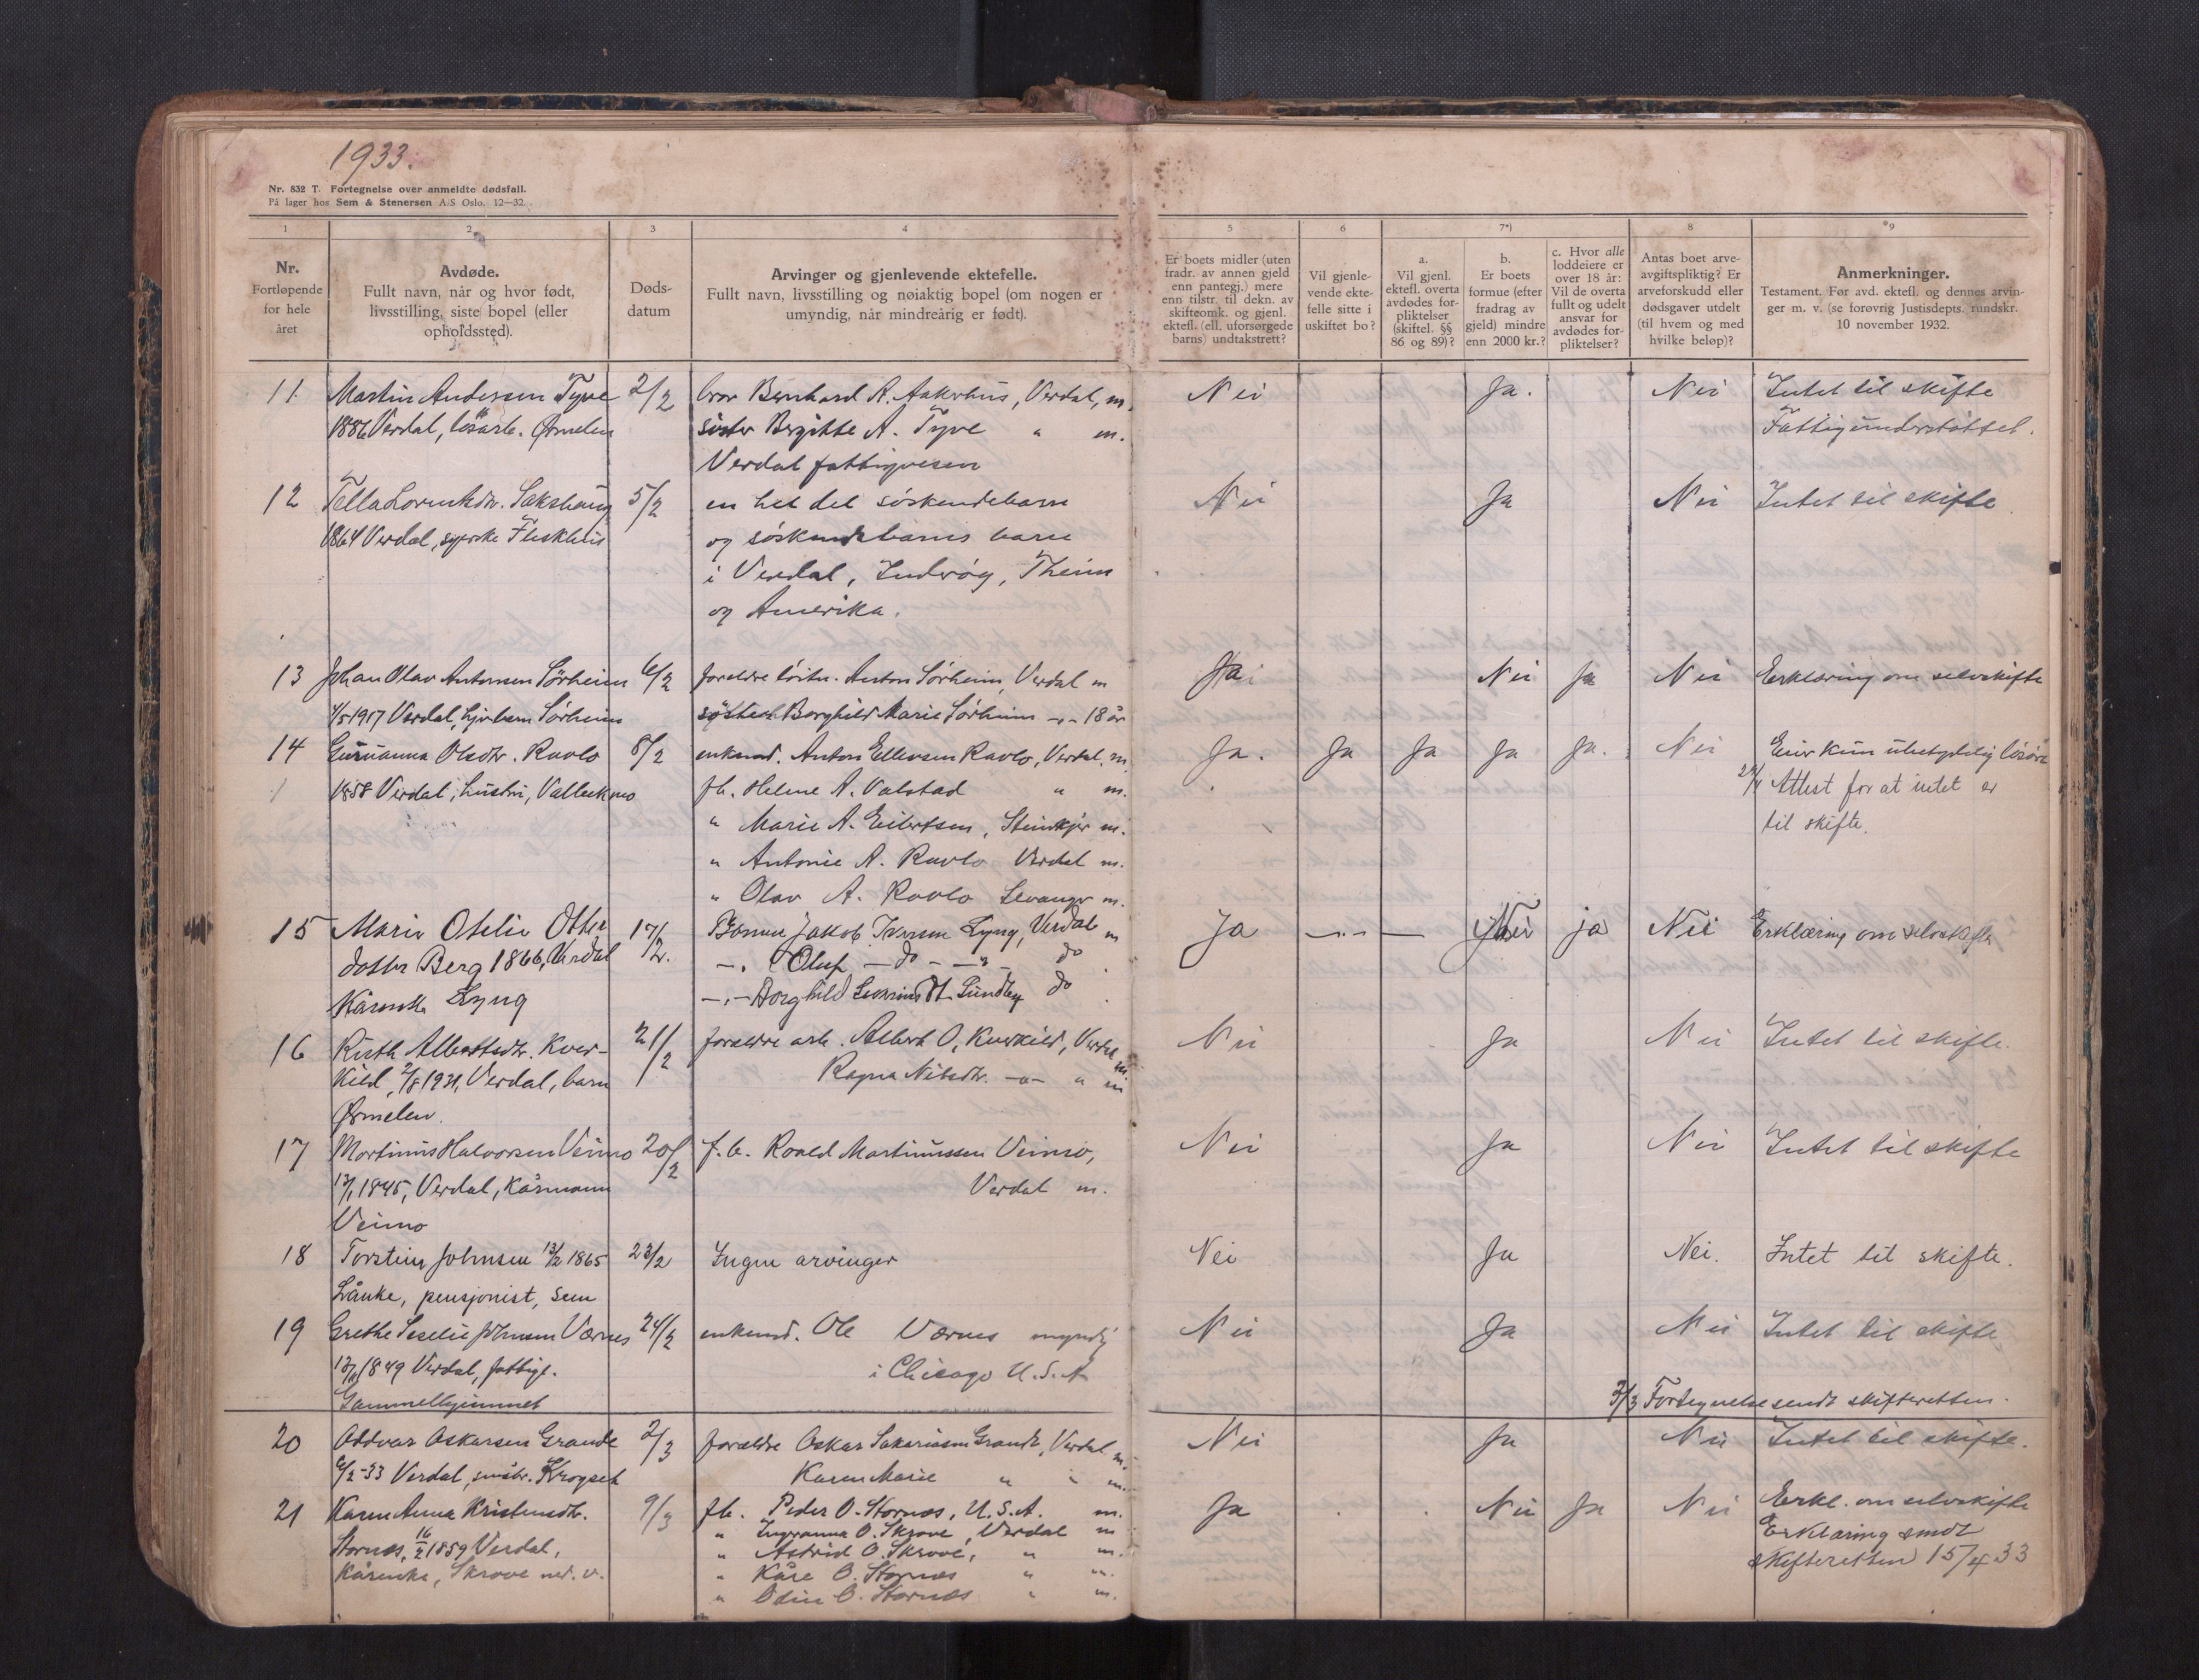 1933.
Nr. 832 T. Fortegnelse over anmeldte dødsfall.
På lager hos Sem & Stenersen A/S Oslo. 12—32.
1 2 3 4 5 6 7*) 8 *9
Nr.
Fortløpende
for hele
året
Avdøde.
Fullt navn, når og hvor født,
livsstilling, siste bopel (eller
opholdssted).
Døds-
datum
Arvinger og gjenlevende ektefelle.
Fullt navn, livsstilling og nøiaktig bopel (om nogen er
umyndig, når mindreårig er født).
Er boets midler (uten
fradr. av annen gjeld
enn pantegj.) mere
enn tilstr. til dekn. av
skifteomk. og gjenl.
ektefl. (ell. uforsørgede
barns) undtakstrett?
Vil gjenle-
vende ekte-
felle sitte i
uskiftet bo?
a.
Vil gjenl.
ektefl. overta
avdødes for-
pliktelser
(skiftel. §§
86 og 89)?
b.
Er boets
formue (efter
fradrag av
gjeld) mindre
enn 2000 kr.?
c. Hvor alle
loddeiere er
over 18 år:
Vil de overta
fullt og udelt
ansvar for
avdødes for-
pliktelser?
Antas boet arve-
avgiftspliktig? Er
arveforskudd eller
dødsgaver utdelt
(til hvem og med
hvilke beløp)?
Anmerkninger.
Testament. Før avd. ektefl. og dennes arvin-
ger m. v. (se forøvrig Justisdepts. rundskr.
10 november 1932.
11 Martin Andersen Tyve 2/2 bror Bernhard A. Aakerhus, Verdal, m. Nei Ja. Nei Intet til skifte
1886 Verdal, løsarb. Ørmelen søster Bergitte A. Tyve " m. Fattigunderstøttet.
Verdal fattigvesen
12 Lorentsdtr. Sakshaug 5/2 en hel del søskendebarn Nei Ja Nei Intet til skifte
1864 Verdal, syerske Fleskhus og søskendebarns barn
i Verdal, Inderøy, Theim
og Amerika.
13 Johan Olav Antonsen Sørheim 6/2 foreldre Anton Sørheim, Verdal m Ja Nei Ja Nei Erklæring om selvskifte
1917 Verdal, Sørheim søster Borghild Marie Sørheim -"- 18 år
14 Gurianna Olsdtr. Ravlo 8/2 enkemd. Anton Ellevsen Ravlo, Verdal. m. Ja. Ja Ja Ja Ja. Nei Eier kun ubetydelig løsøre
1858 Verdal, hustru, Vallekmo fb. Helene A. Valstad " m. Attest for at intet er
" Marie A. Eilertsen, Steinkjer m. til skifte.
" Antonie A. Ravlo Verdal m.
" Olav A. Ravlo Levanger m.
15 Marie Otelie Otter 17/2. Jakob Iversen Lyng, Verdal m Ja Nei ja Nei Erklæring om selvskifte
dotter Berg 1866, Verdal -"- Oluf -do- -"- do
Kårenke Lyng -"- Borghild Sundby do
16 Ruth Albertsdtr. Kver- 21/2 foreldre arb. Albert O. Kverkild, Verdal m Nei Ja Nei Intet til skifte.
kild, 1931, Verdal, barn Ragna Nilsdtr. -"- " m
Ørmelen.
17 Martinus Halvorsen Veimo 20/2 f.b. Roald Martinussen Veimo, Nei Ja Nei Intet til skifte
1845, Verdal, kårmann Verdal m.
Veimo
18 Torstein Johnsen 13/2 1865 23/2 Ingen arvinger Nei Ja Nei. Intet til skifte.
Lånke, pensjonist, sem
19 Grethe Johnsen Værnes 24/2 enkemd. Ole Værnes myndig Nei Ja Nei Intet til skifte
1849 Verdal, fattigl. i Chicago U.S.A
Gammelhjemmet
3/3 Fortegnelse sendt skifteretten.
20 Oddvar Oskarsen Grande 2/3 foreldre Oskar Sakariasen Grande, Verdal m. Nei Ja Nei Intet til skifte.
6/2-33 Verdal, småbr. Krogset Karen Marie " " m.
21 Karen Anna Kristensdtr. 9/3 fb. Peder O. Stornes, U.S.A. m. Ja Nei Ja Nei Erkl. om selvskifte
Stornes, 16/2 1859 Verdal, " Ingeranna O. Skrove, Verdal m Erklæring sendt
Kårenke, Skrove ned. v. " Astrid O. Skrove, " m. skifteretten 15/4 33
" Kåre O. Stornes " m.
" Odin O. Stornes " m.